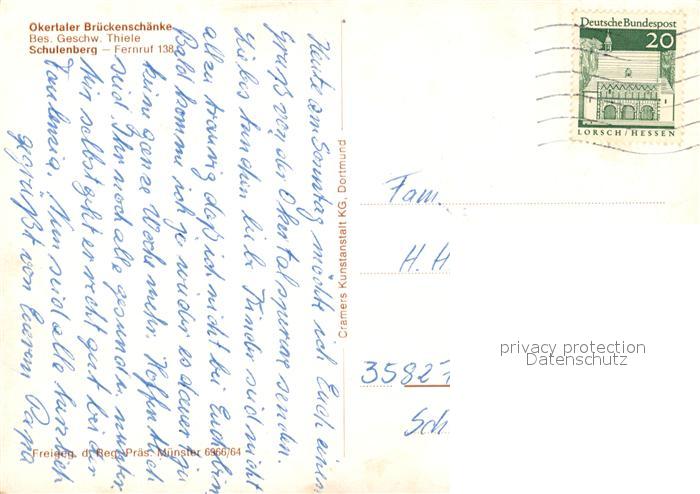 Okertaler Brückenschänke
Bes. Geschw. Thiele
Schulenberg – Fernruf 138
Heute am Sonntag möchte ich Euch einen
Gruß von der Okertalsperre senden.
Liebes liebe Kinder seid nicht
allzu traurig daß ich nicht bei Euch bin
Bald komme ich ja wieder es dauert ja
keine ganze Woche mehr. Hoffentlich
seid Ihr noch alle gesund u. munter.
Mir selbst geht es recht gut bei der
Nun seid alle herzlich
gegrüßt von Eurem Papa
Freigeg. d. Reg. Präs. Münster 6966/64
Cramers Kunstanstalt KG, Dortmund
Deutsche Bundespost
20
LORSCH/HESSEN
Fam.
H. H
35827
Sch
privacy protection
Datenschutz